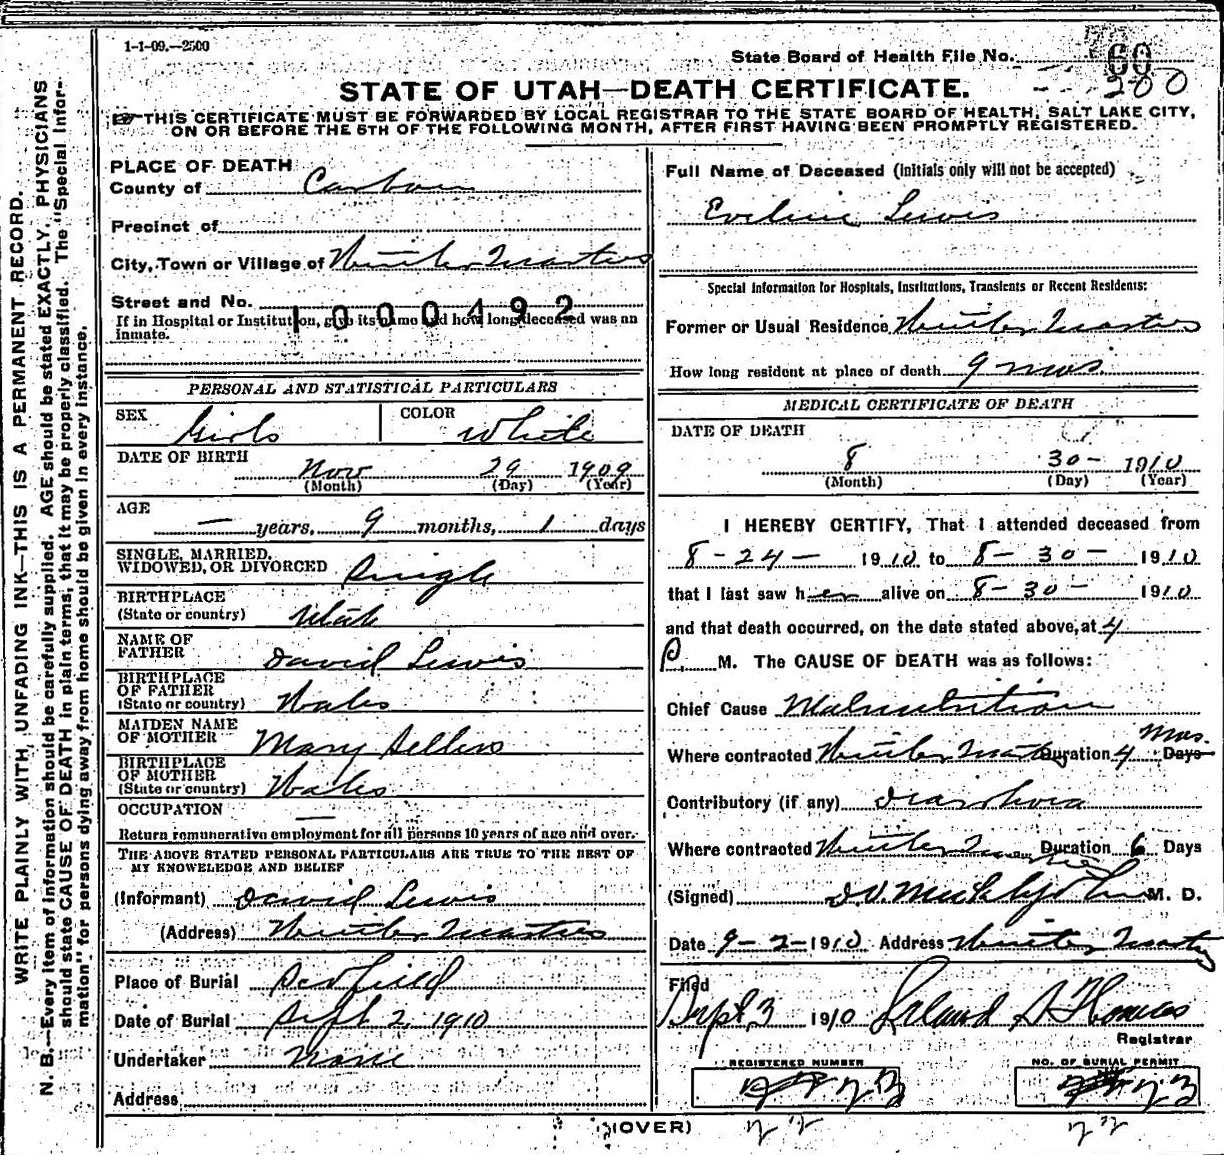 1-1-09.—2500
State Board of Health File No. 60
200
STATE OF UTAH—DEATH CERTIFICATE.
THIS CERTIFICATE MUST BE FORWARDED BY LOCAL REGISTRAR TO THE STATE BOARD OF HEALTH, SALT LAKE CITY,
ON OR BEFORE THE 5TH OF THE FOLLOWING MONTH, AFTER FIRST HAVING BEEN PROMPTLY REGISTERED.
WRITE PLAINLY WITH UNFADING INK—THIS IS A PERMANENT RECORD.
N. B.—Every item of information should be carefully supplied. AGE should be stated EXACTLY. PHYSICIANS
should state CAUSE OF DEATH in plain terms, that it may be properly classified. The "Special Infor-
mation" for persons dying away from home should be given in every instance.
PLACE OF DEATH
County of Carbon
Precinct of
City, Town or Village of Winter Quarters
Street and No.
1000492
If in Hospital or Institution, give its name and how long deceased was an
inmate.
PERSONAL AND STATISTICAL PARTICULARS
SEX Girls COLOR White
DATE OF BIRTH
Nov 29 1909
(Month) (Day) (Year)
AGE
— years, 9 months, 1 days
SINGLE, MARRIED,
WIDOWED, OR DIVORCED Single
BIRTHPLACE
(State or country) Utah
NAME OF
FATHER David Lewis
BIRTHPLACE
OF FATHER
(State or country) Wales
MAIDEN NAME
OF MOTHER Mary Sellers
BIRTHPLACE
OF MOTHER
(State or country) Wales
OCCUPATION —
Return remunerative employment for all persons 10 years of age and over.
THE ABOVE STATED PERSONAL PARTICULARS ARE TRUE TO THE BEST OF
MY KNOWLEDGE AND BELIEF
(Informant) David Lewis
(Address) Winter Quarters
Place of Burial Scofield
Date of Burial Sept 2, 1910
Undertaker None
Address
Full Name of Deceased (Initials only will not be accepted)
Eveline Lewis
Special Information for Hospitals, Institutions, Transients or Recent Residents:
Former or Usual Residence Winter Quarters
How long resident at place of death 9 mos
MEDICAL CERTIFICATE OF DEATH
DATE OF DEATH
8 30- 1910
(Month) (Day) (Year)
I HEREBY CERTIFY, That I attended deceased from
8-24- 1910 to 8-30- 1910
that I last saw her alive on 8-30- 1910
and that death occurred, on the date stated above, at 4
P. M. The CAUSE OF DEATH was as follows:
Chief Cause Malnutrition
Where contracted Winter Quarters Duration 4 Mos. Days
Contributory (if any) diarrhoea
Where contracted Winter Quarters Duration 6 Days
(Signed) M. D.
Date 9-2-1910 Address Winter Quarters
Filed
Sept 3 1910 Leland S Thomas
Registrar
REGISTERED NUMBER NO. OF BURIAL PERMIT
(OVER) 22 22